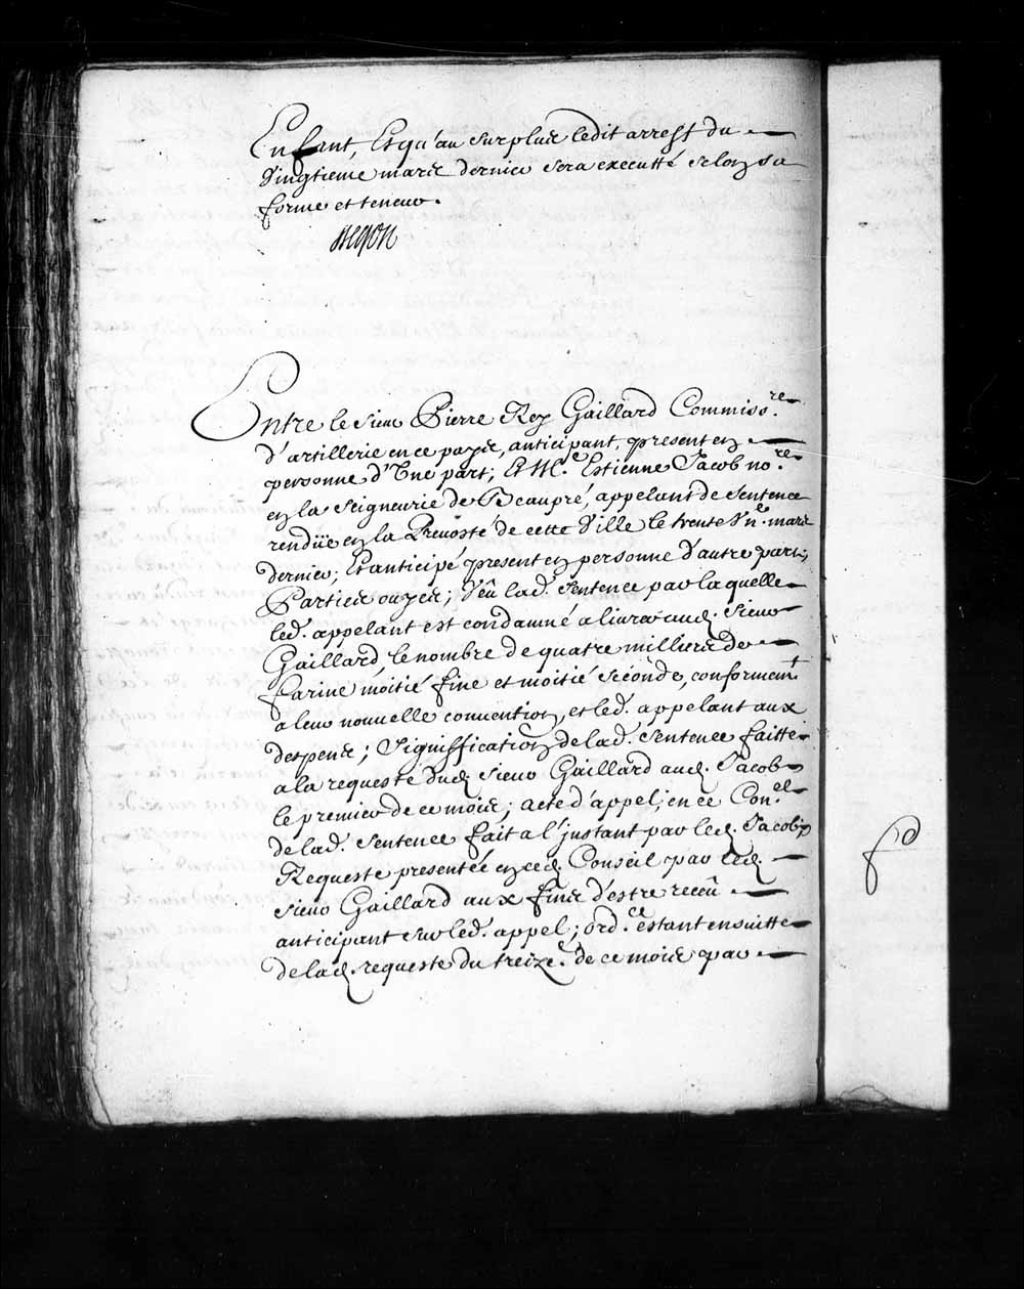 Enfant, Et qu'au surplus ledit arrest du
Vingtieme mars dernier sera executté selon sa
forme et teneur.
Begon
Entre le sieur Pierre Rey Gaillard Commiss.re
d'artillerie en ce payis, anticipant, present en
personne d'Vne part; Et M.e Estienne Jacob no.re
en la seigneurie de Beaupré, appelant de sentence
rendüe en la Prevosté de cette Ville le trente Vn.e mars
dernier; Et anticipé present en personne d'autre part;
Parties ouyes; Veû lad. sentence par laquelle
led. appelant est condamné a livrer aud. sieur
Gaillard, le nombre de quatre milliers de
farine moitié fine et moitié seconde, conformem.t
a leur nouvelle convention, et led. appelant aux
despens; Signiffication de lad. sentence faitte
a la requeste dud. sieur Gaillard aud. Jacob
le premier de ce mois; acte d'appel, en ce Con.el
de lad. sentence fait a l'jnstant par led. Jacob;
Requeste presentée en ced. Conseil par led.
sieur Gaillard aux fins d'estre receû
anticipant sur led. appel; ord.ce estant ensuitte
de lad. requeste du treize.e de ce mois par